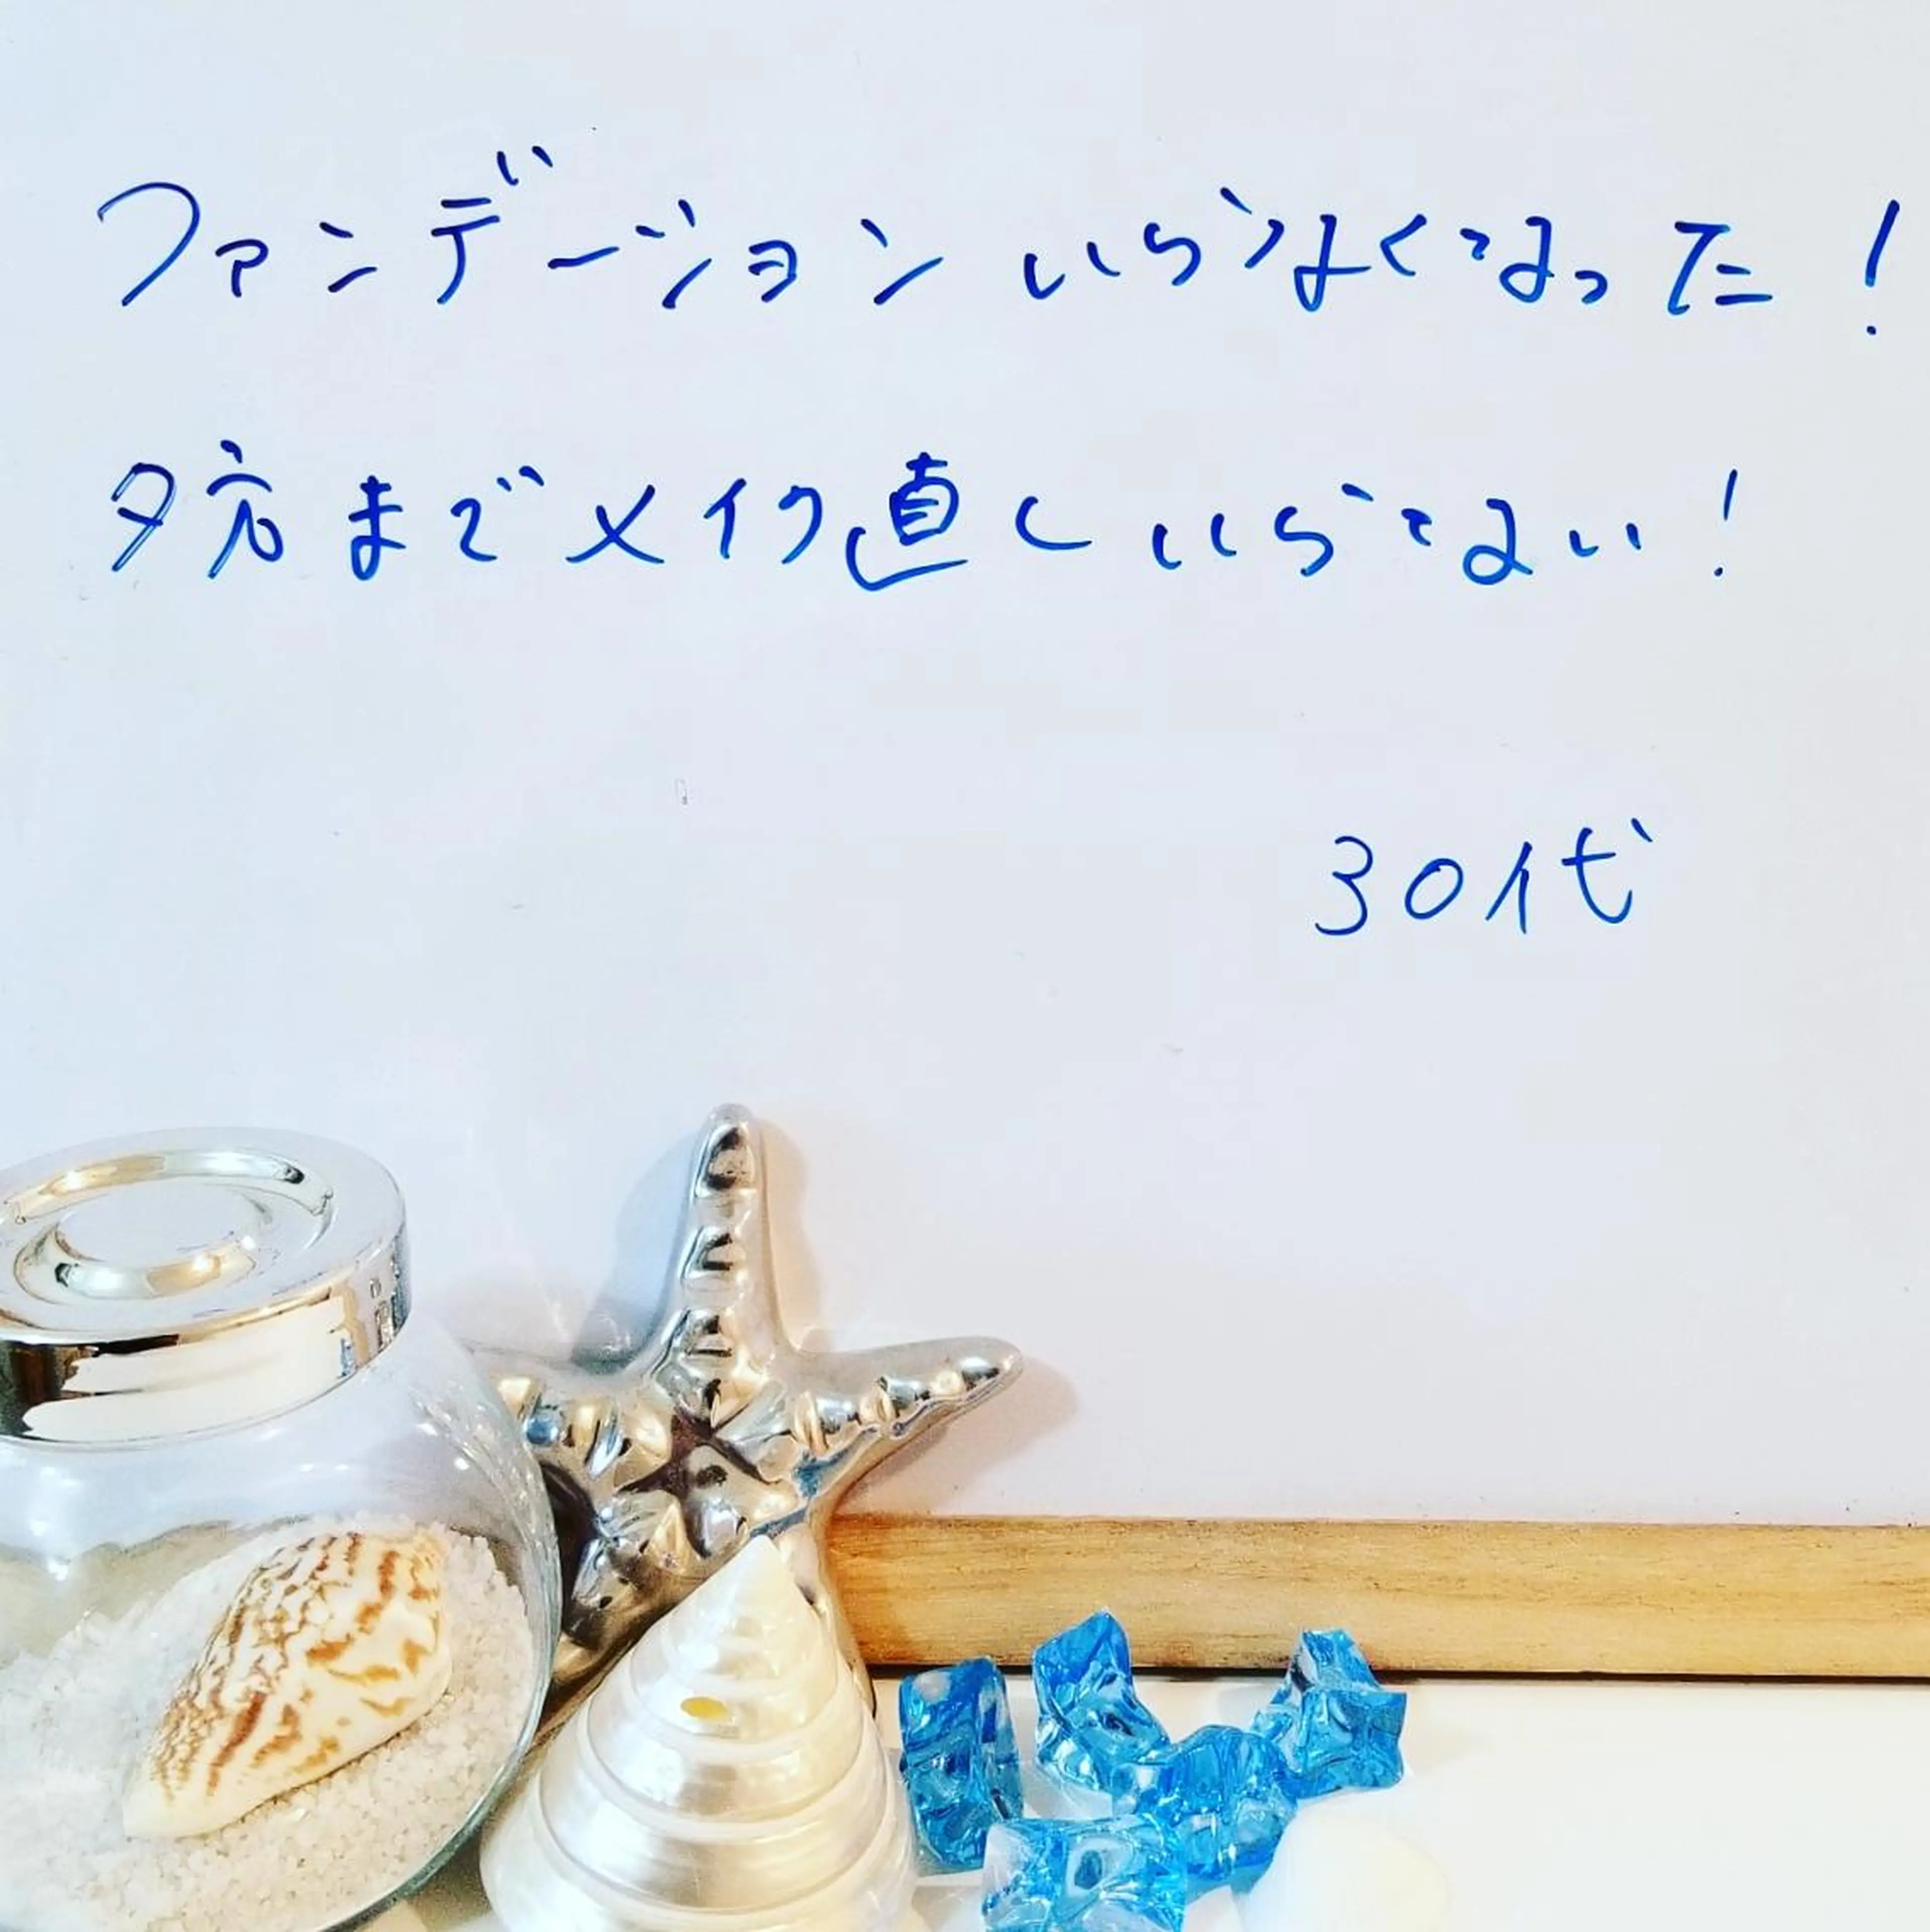 ファンデーションいらなくなった！
夕方までメイク直しいらない！
30代